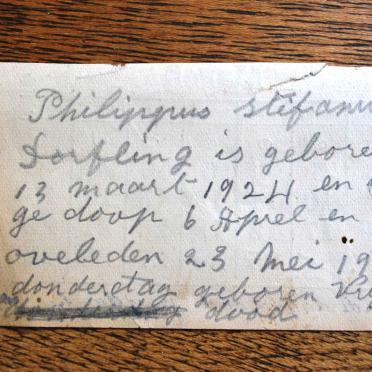 Philippus stifanu
Dorfling is gebore
13 maart 1924 en
ge doop 6 Aprel en
oveleden 23 Mei 19
donderstag geboren vry
dood